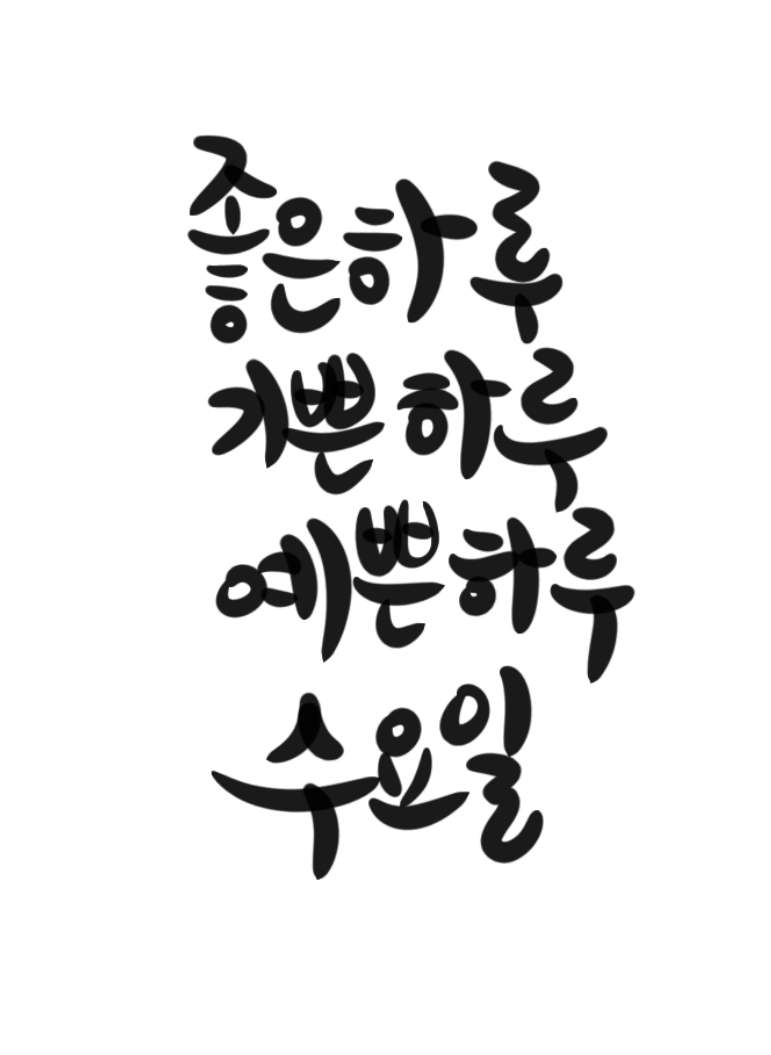 좋은하루
기쁜하루
예쁜하루
수요일